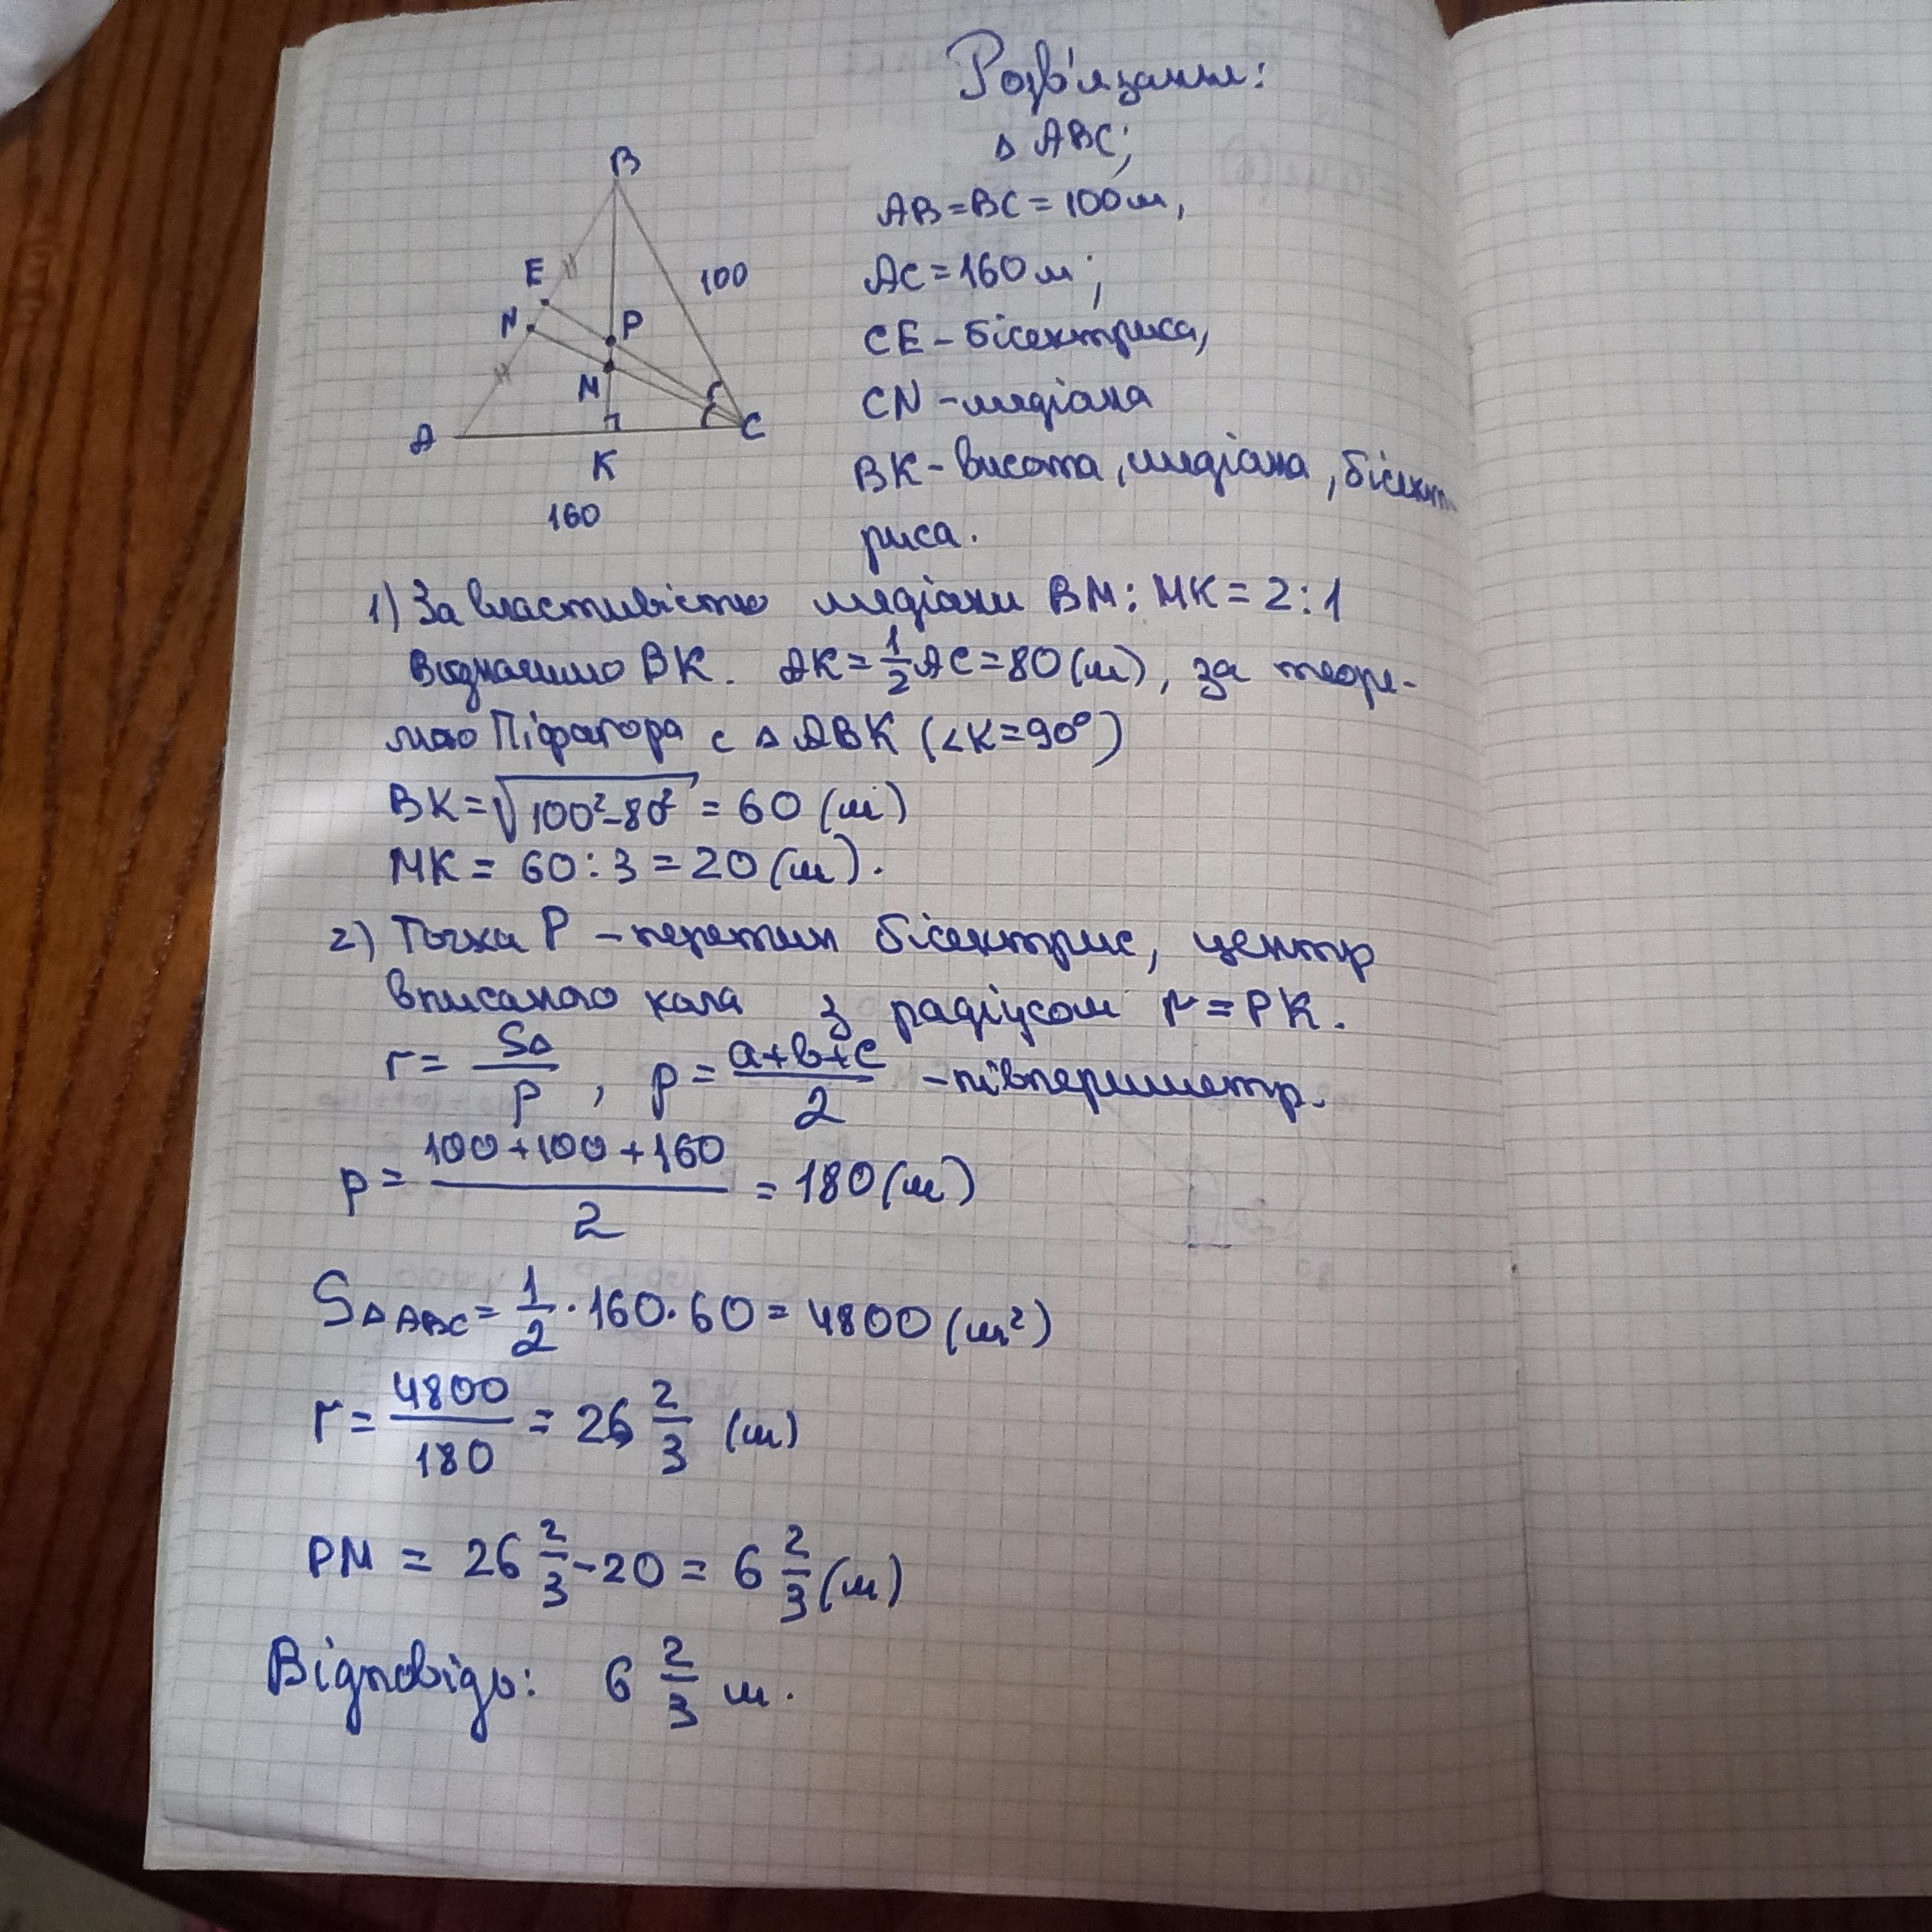 Розв'язання:
Δ ABC;
AB=BC=100м,
AC=160м;
CE-бісектриса,
CN-медіана
BK-висота, медіана, бісект
риса.
B
E
N
P
M
100
A
K
C
160
1) За властивістю медіани BM:MK=2:1
Визначимо BK. AK=1/2AC=80(м), за теоре-
мою Піфагора с Δ ABK (∠K=90°)
BK=√100²-80²=60 (м)
MK= 60:3=20(м).
2) Точка P-перетин бісектрис, центр
вписаного кола з радіусом r=PK.
r= SΔ/p, p= a+b+c/2 -півпериметр.
p= 100+100+160/2 =180(м)
SΔABC= 1/2·160·60=4800(м²)
r= 4800/180 = 26 2/3 (м)
PM = 26 2/3-20= 6 2/3(м)
Відповідь: 6 2/3 м.